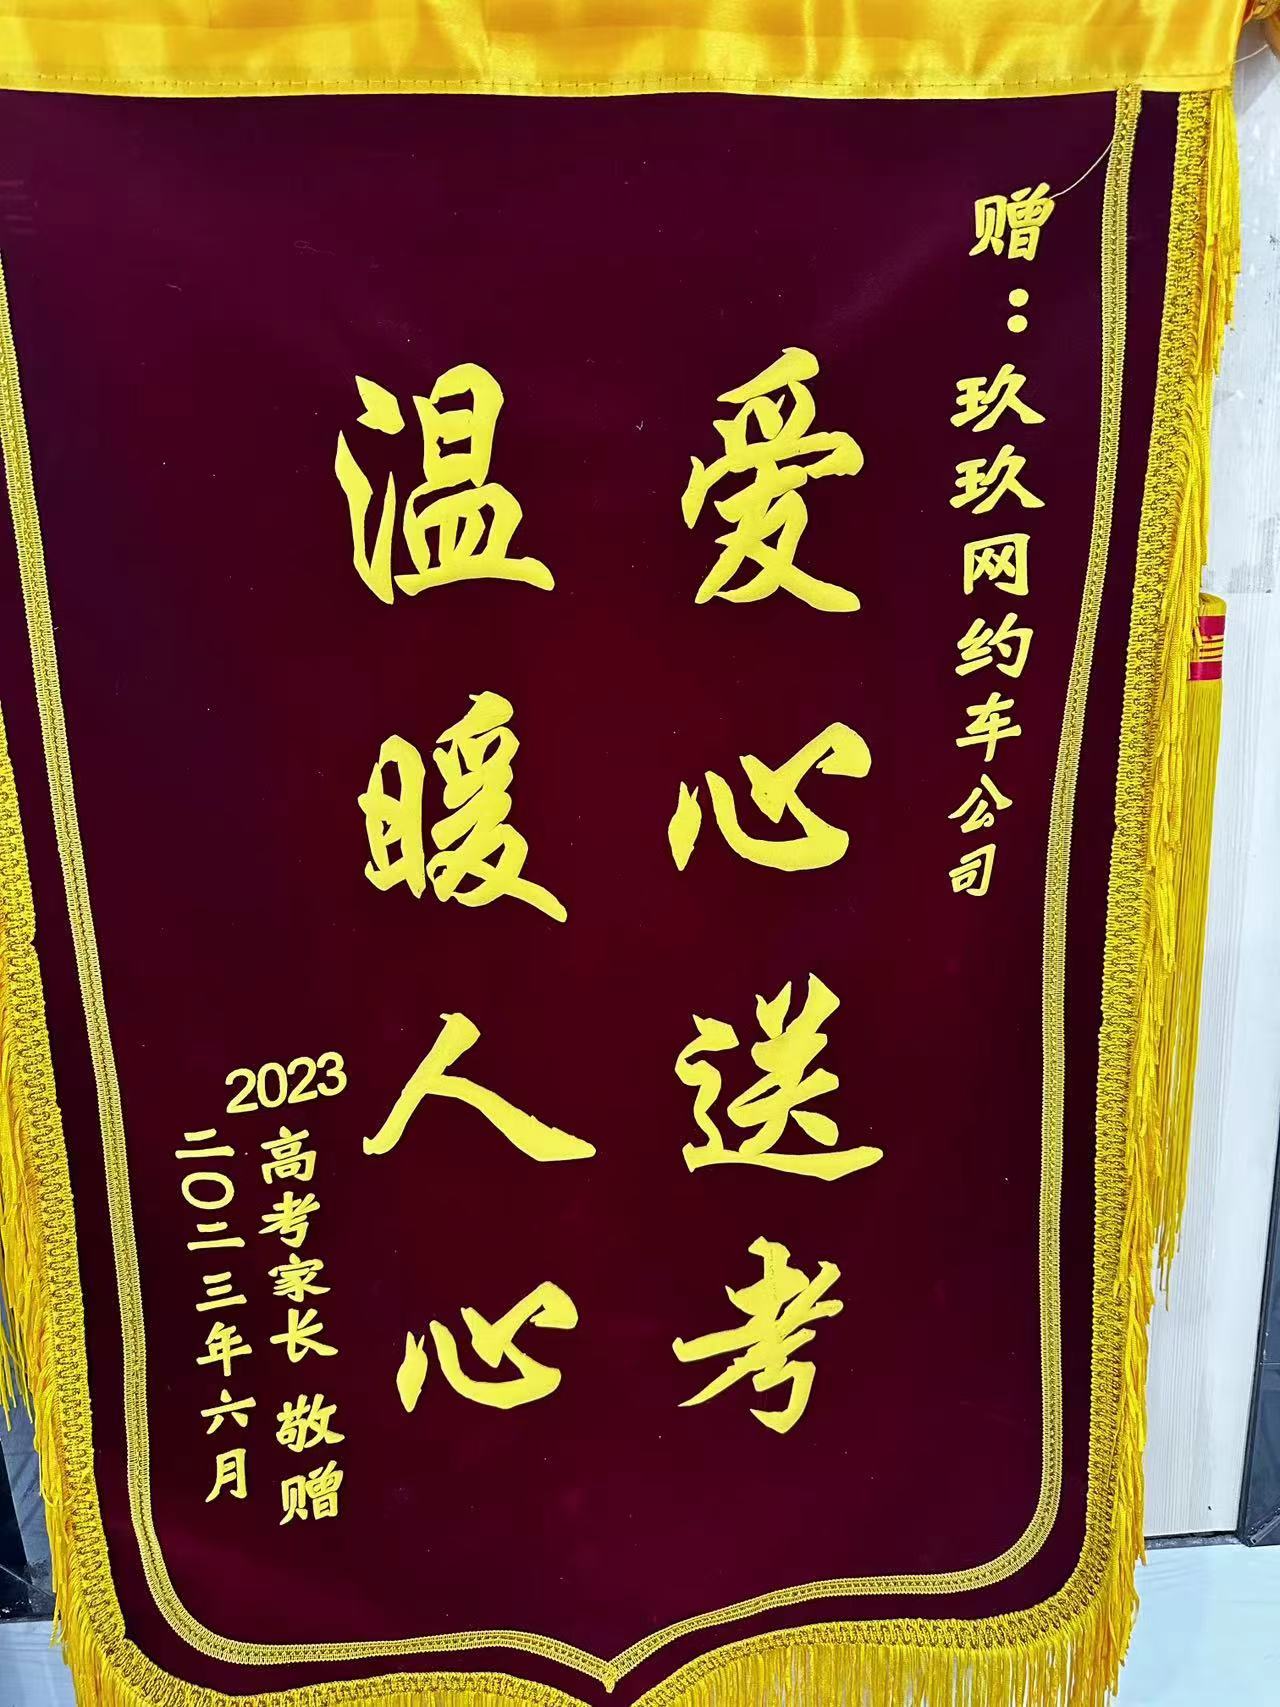 赠：玖玖网约车公司
爱心送考
温暖人心
2023高考家长 敬赠
二〇二三年六月